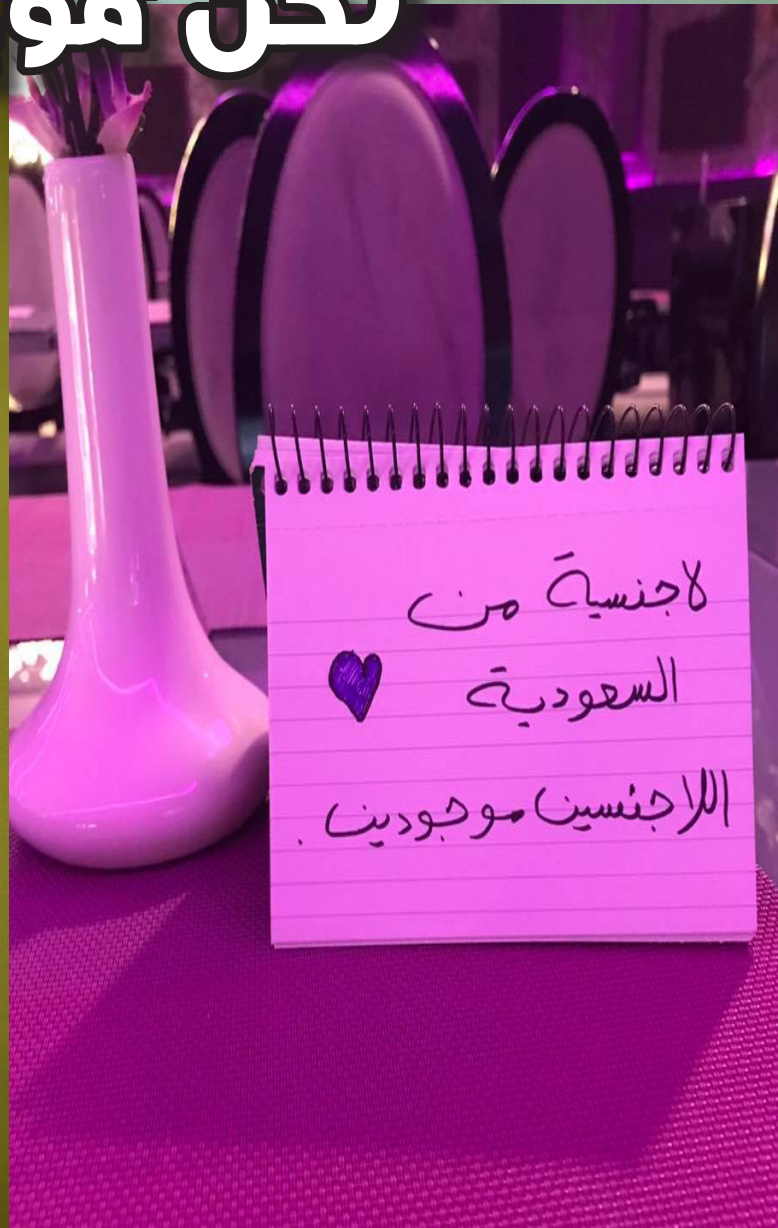 نحن مو
لاجنسية من
السعودية
اللاجنسين موجودين.